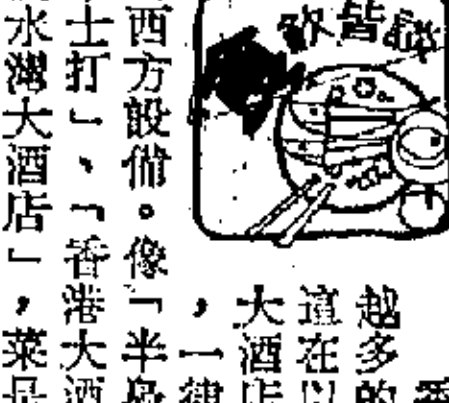 越多的
這在以
大酒店
，一律
西方設備。像「半島
士打」、「香港大酒
水灣大酒店」，菜是